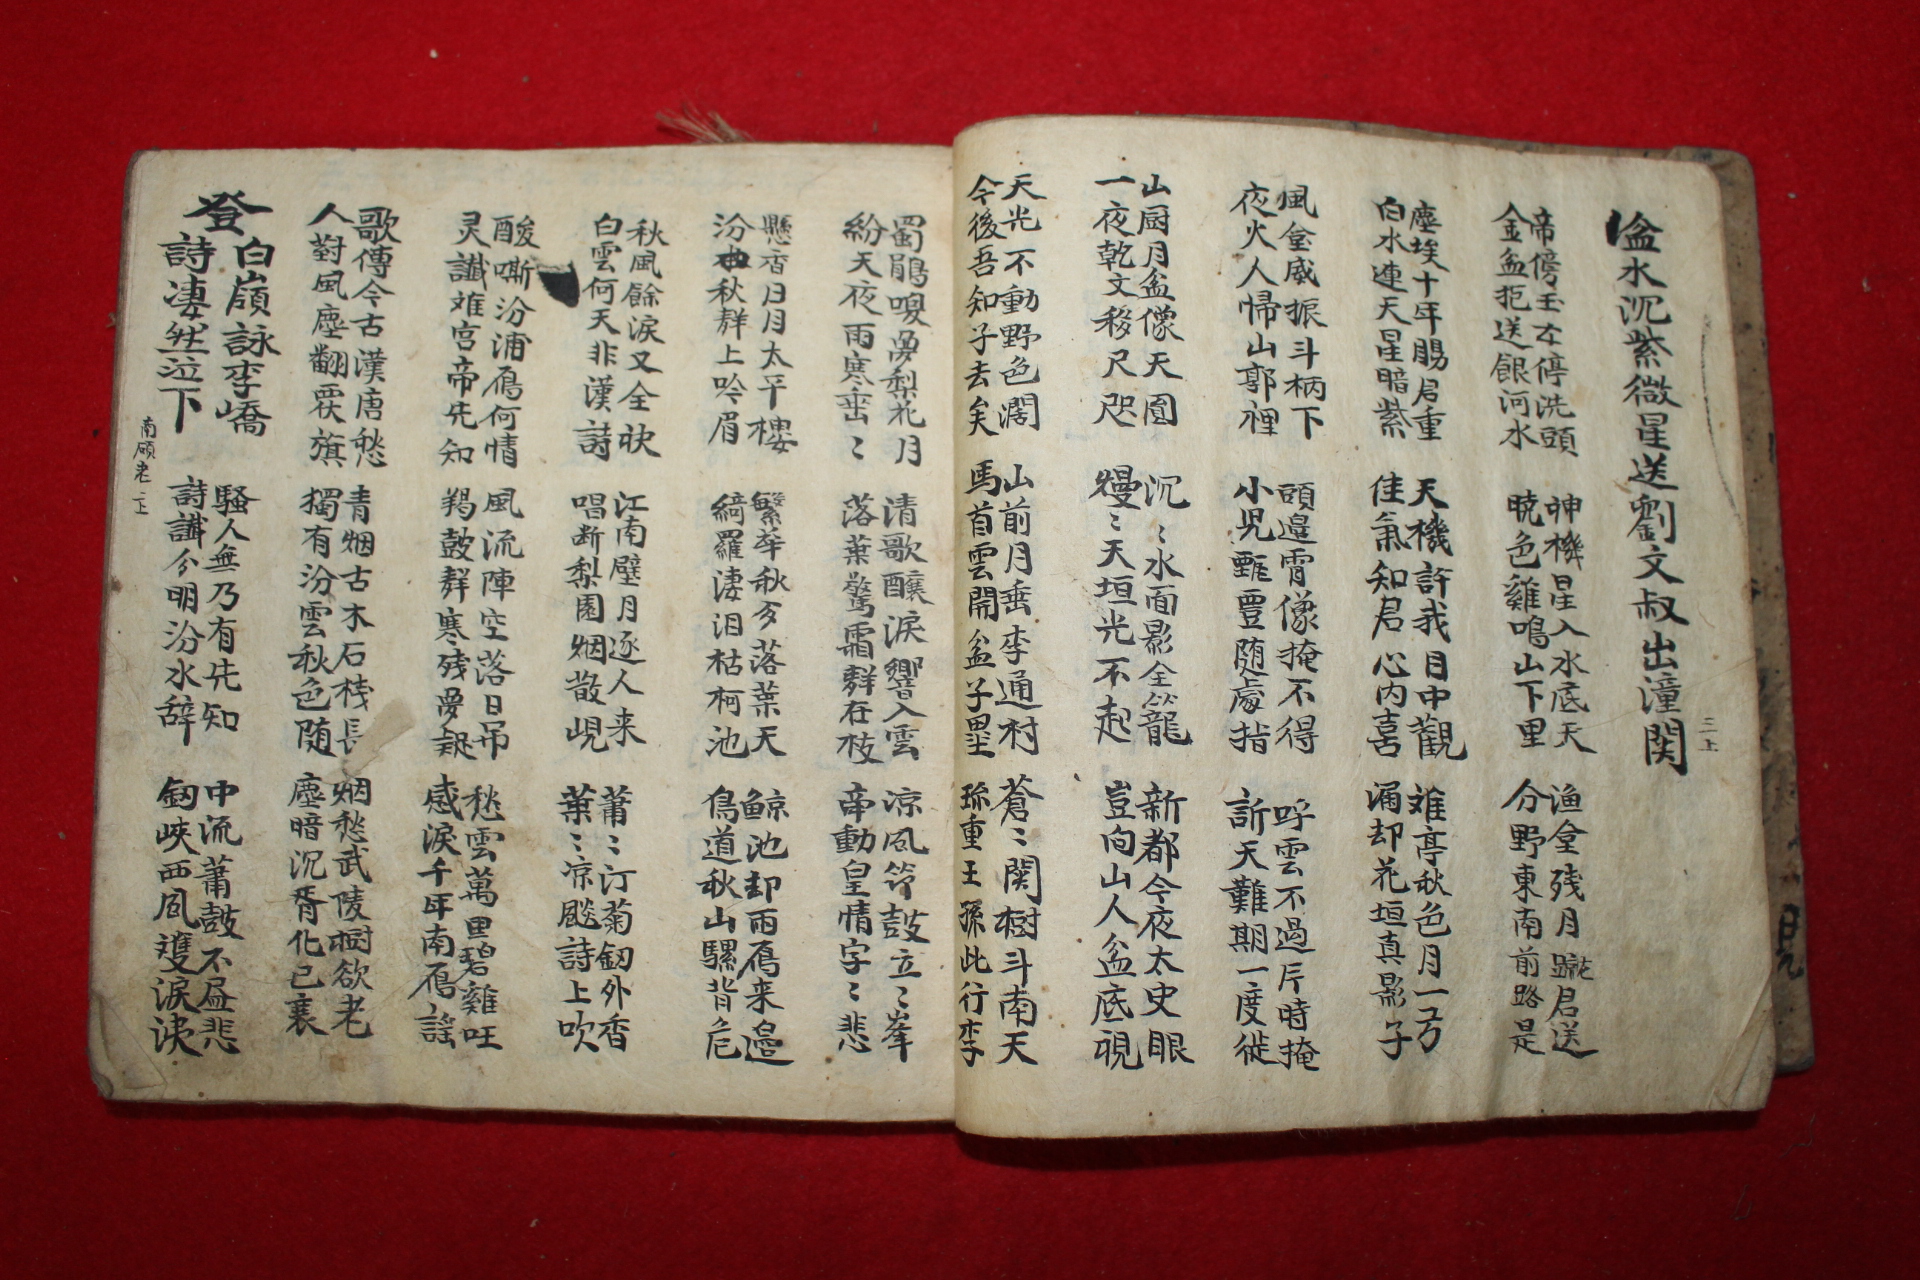 盆水沉紫微星送劉文叔出潼関
帝傍玉左停洗頭
金盆扼送銀河水
神機星入水底天
曉色雞鳴山下里
渔仝残月蹴君送
分野東南前路是
塵埃十年賜君重
白水連天星暗紫
天機許我目中觀
佳氣知君心内喜
难亭秋色月一方
涌却花垣真影子
風仝威振斗柄下
夜火人帰山郭裡
頭邉霄像掩不得
小児甄豊随處指
呼雲不過片時掩
訢天難期一度徙
山厨月盆像天圓
一夜乾文移尺咫
沉〻水面影全籠
熳〻天垣光不起
新都今夜太史眼
豈向山人盆底視
天光不動野色濶
今後吾知子去矣
山前月垂李通村
馬首雲開盆子壘
蒼〻関樹斗南天
珎重王孫此行李
蜀鵑嗅夢梨花月
紛天夜雨寒蛩〻
清歌釀淚響入雲
落葉驚霜群在枝
凉風笳鼓立〻峯
帝動皇情字〻悲
懸香日月太平樓
汾曲秋群上吟眉
繁華秋歹落葉天
綺羅凄泪枯柯池
鯨池却雨鴈来邉
鳥道秋山騾背危
秋風餘淚又全袂
白雲何天非漢詩
江南壁月逐人来
唱断梨園烟散峴
莆〻汀菊釼外香
葉〻凉颷詩上吹
酸嘶汾浦鴈何情
灵讖难宮帝先知
風流陣空落日吊
羯鼓群寒残夢疑
愁雲萬里碧雞旺
感淚千年南鴈謡
歌傳今古漢唐愁
人對風塵翻覆旗
青烟古木石棧長
獨有汾雲秋色随
烟愁武陵樹欲老
塵暗沉香化已衰
登白嶺詠李嶠
詩凄然泣下
南碩老 二上
騷人無乃有先知
詩讖分明汾水辞
中流莆鼓不昼悲
釼峽西風雙淚泱
三上